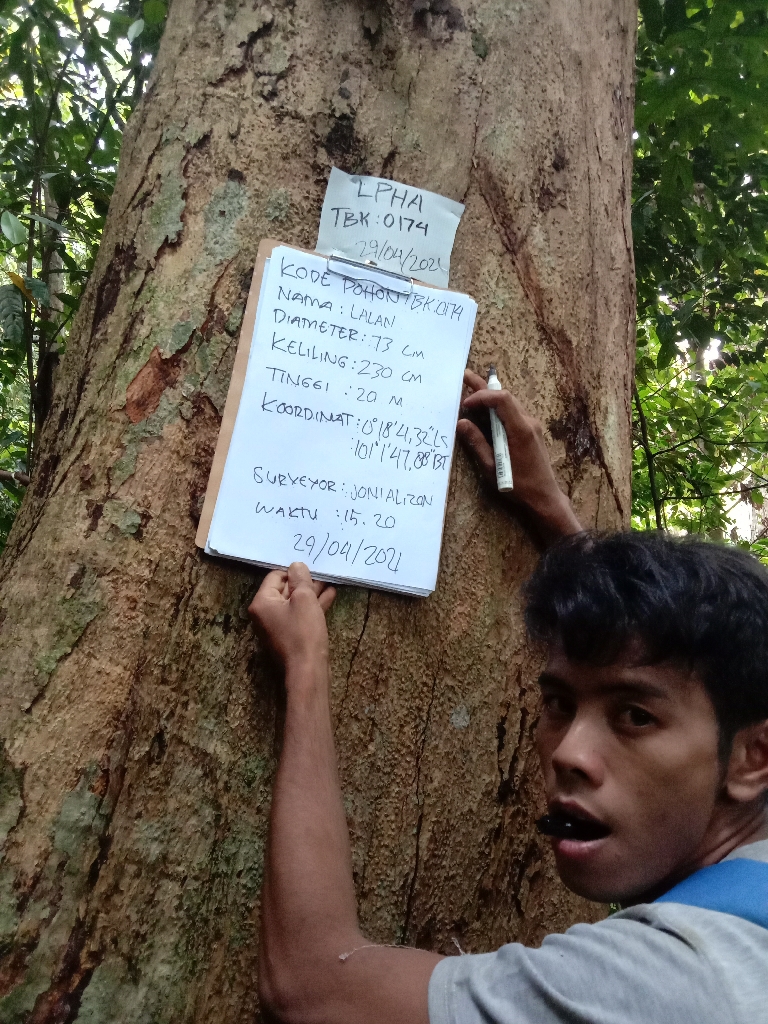 LPHA
TBK:0174
29/04/2021
KODE POHON TBK:0174
NAMA : LALAN
DIAMETER : 73 cm
KELILING : 230 cm
TINGGI : 20 M
KOORDINAT : 0°18'41,32"LS
101°1'47,88"BT
SURVEYOR : JONIALIZON
WAKTU : 15.20
29/04/2021